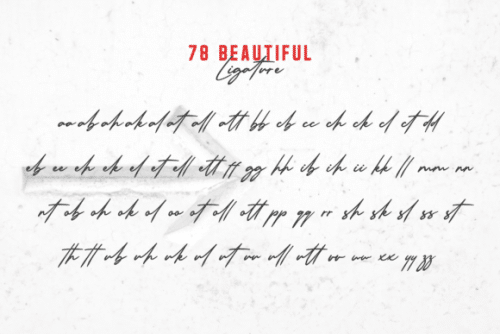 78 BEAUTIFUL
Ligature
aa ab ah ak al at all att bb cb cc ch ck cl ct dd
eb ee eh ek el et ell ett ff gg hh ib ih ii kk ll mm nn
nt ob oh ok ol oo ot oll ott pp qq rr sh sk sl ss st
th tt ub uh uk ul ut uu ull utt vv ww xx yy zz